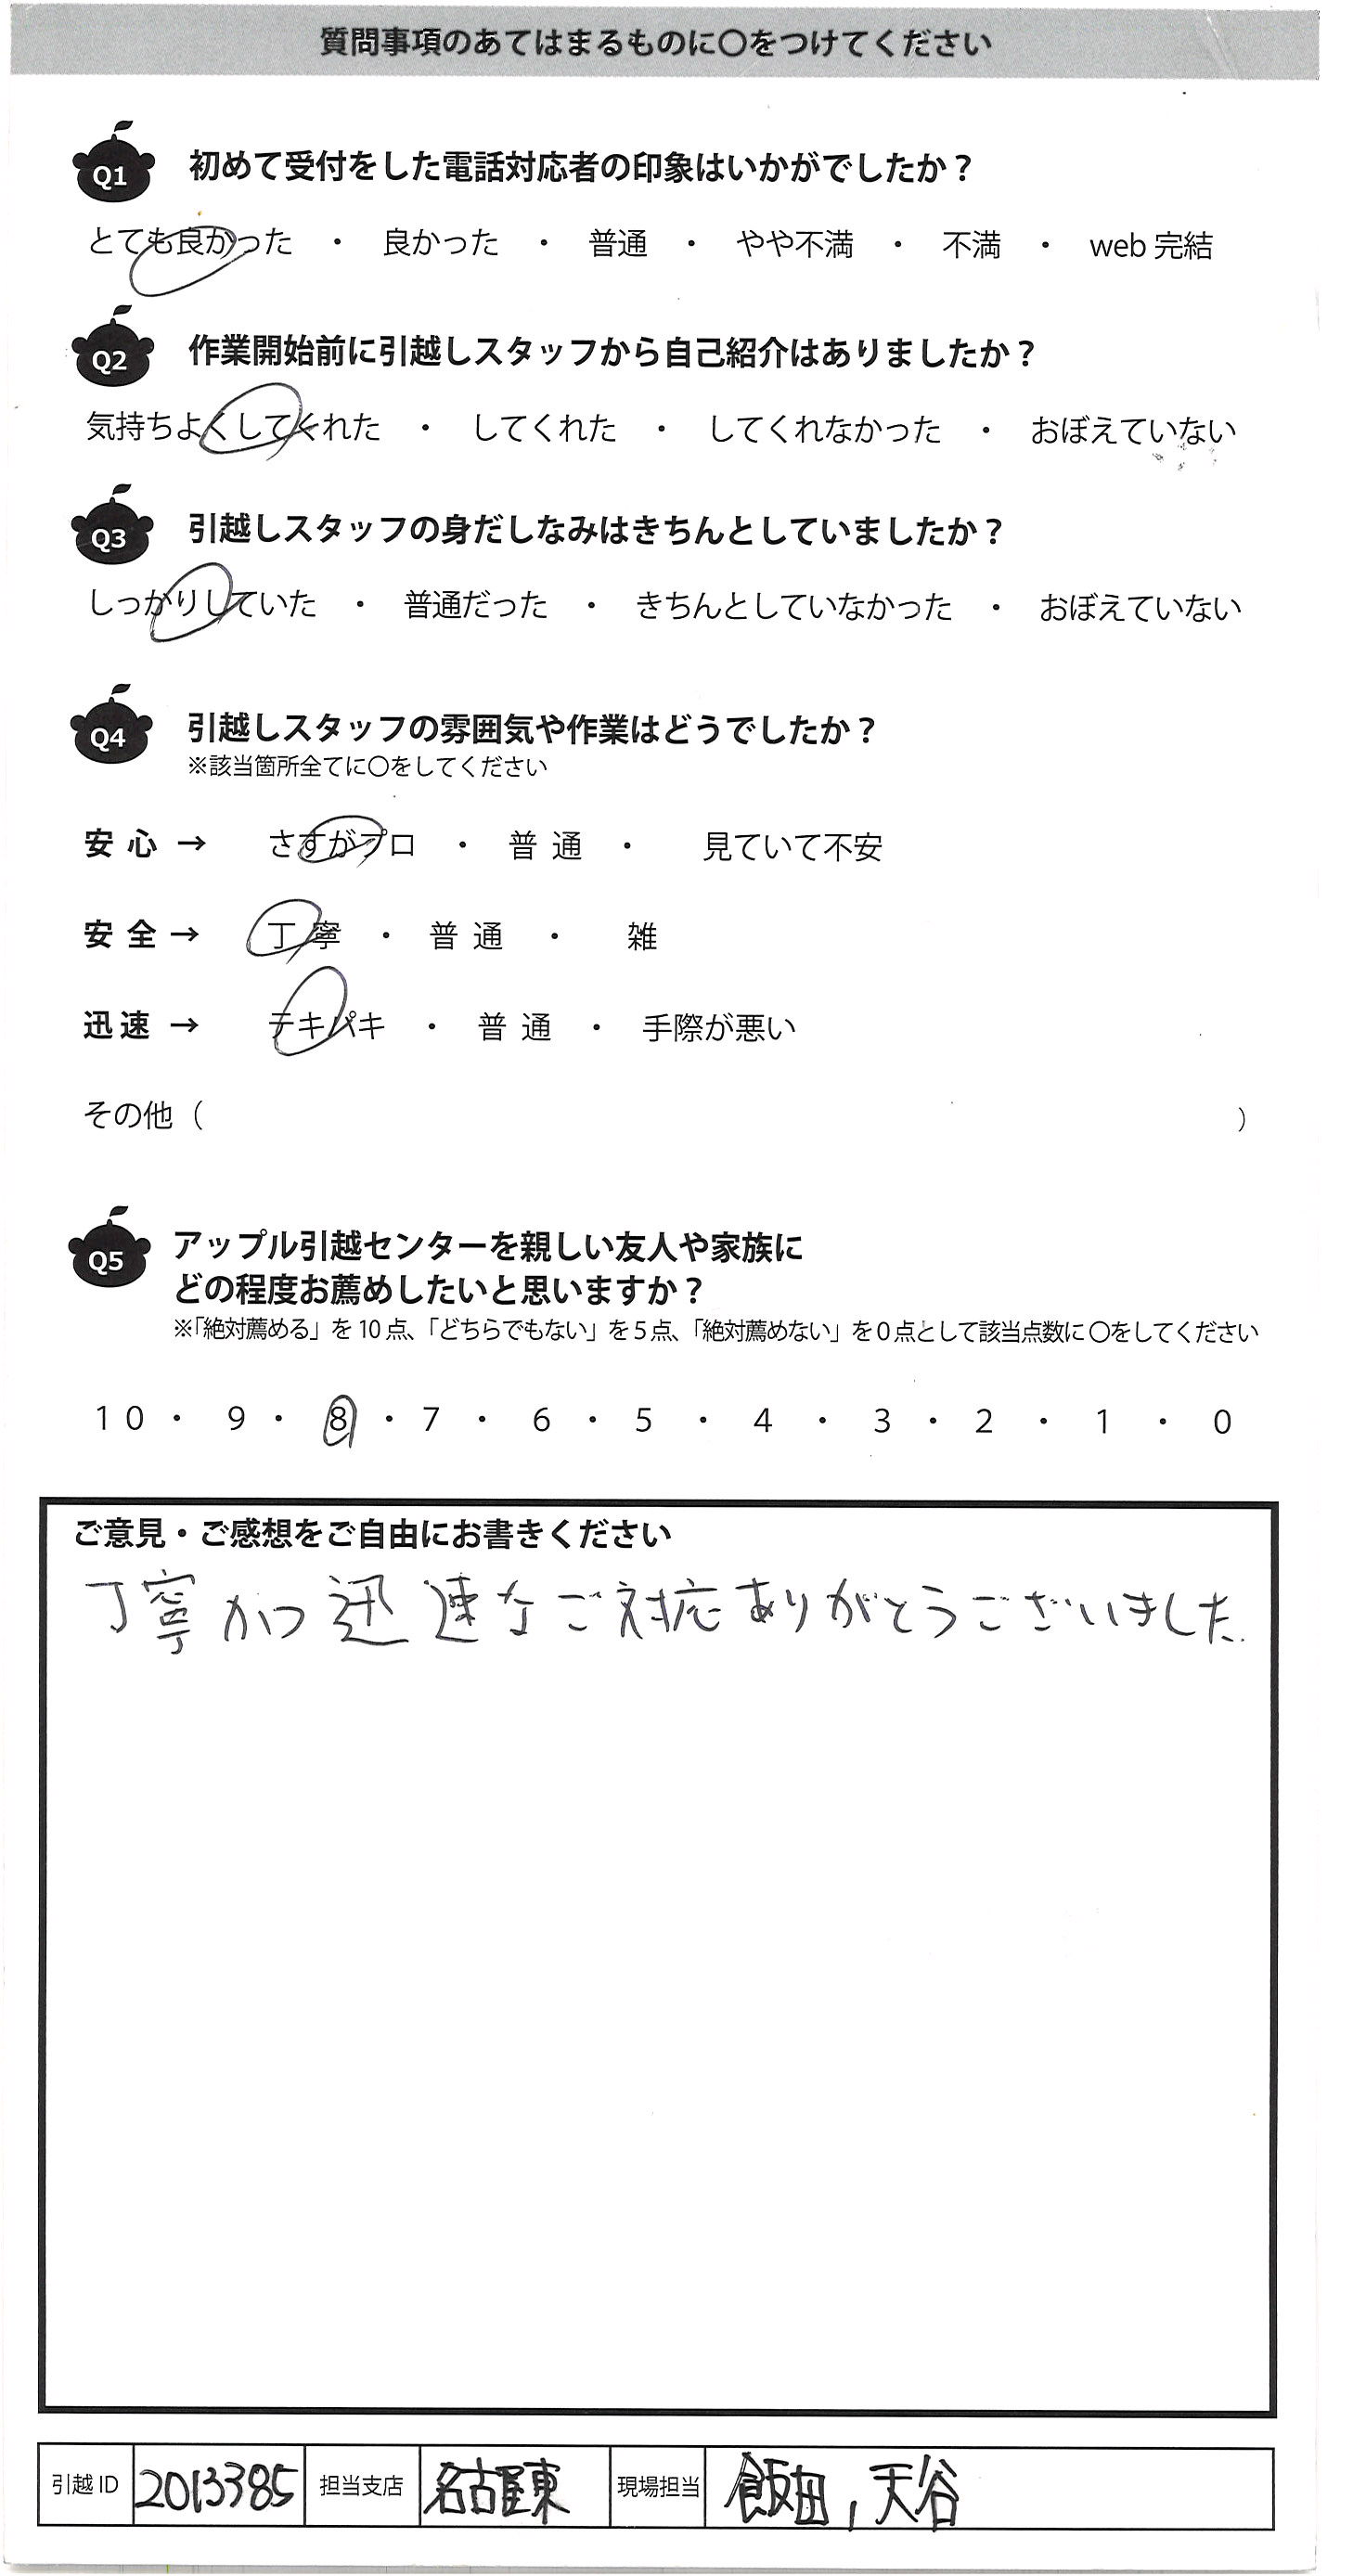 質問事項のあてはまるものに〇をつけてください
Q1 初めて受付をした電話対応者の印象はいかがでしたか？
とても良かった ・ 良かった ・ 普通 ・ やや不満 ・ 不満 ・ web 完結
Q2 作業開始前に引越しスタッフから自己紹介はありましたか？
気持ちよくしてくれた ・ してくれた ・ してくれなかった ・ おぼえていない
Q3 引越しスタッフの身だしなみはきちんとしていましたか？
しっかりしていた ・ 普通だった ・ きちんとしていなかった ・ おぼえていない
Q4 引越しスタッフの雰囲気や作業はどうでしたか？
※該当箇所全てに〇をしてください
安心 → さすがプロ ・ 普通 ・ 見ていて不安
安全 → 丁寧 ・ 普通 ・ 雑
迅速 → テキパキ ・ 普通 ・ 手際が悪い
その他（ ）
Q5 アップル引越センターを親しい友人や家族に
どの程度お薦めしたいと思いますか？
※「絶対薦める」を 10 点、「どちらでもない」を 5 点、「絶対薦めない」を 0 点として該当点数に 〇をしてください
10 ・ 9 ・ 8 ・ 7 ・ 6 ・ 5 ・ 4 ・ 3 ・ 2 ・ 1 ・ 0
ご意見・ご感想をご自由にお書きください
丁寧かつ迅速なご対応ありがとうございました.
引越 ID 2013385 担当支店 名古屋東 現場担当 飯田, 天谷